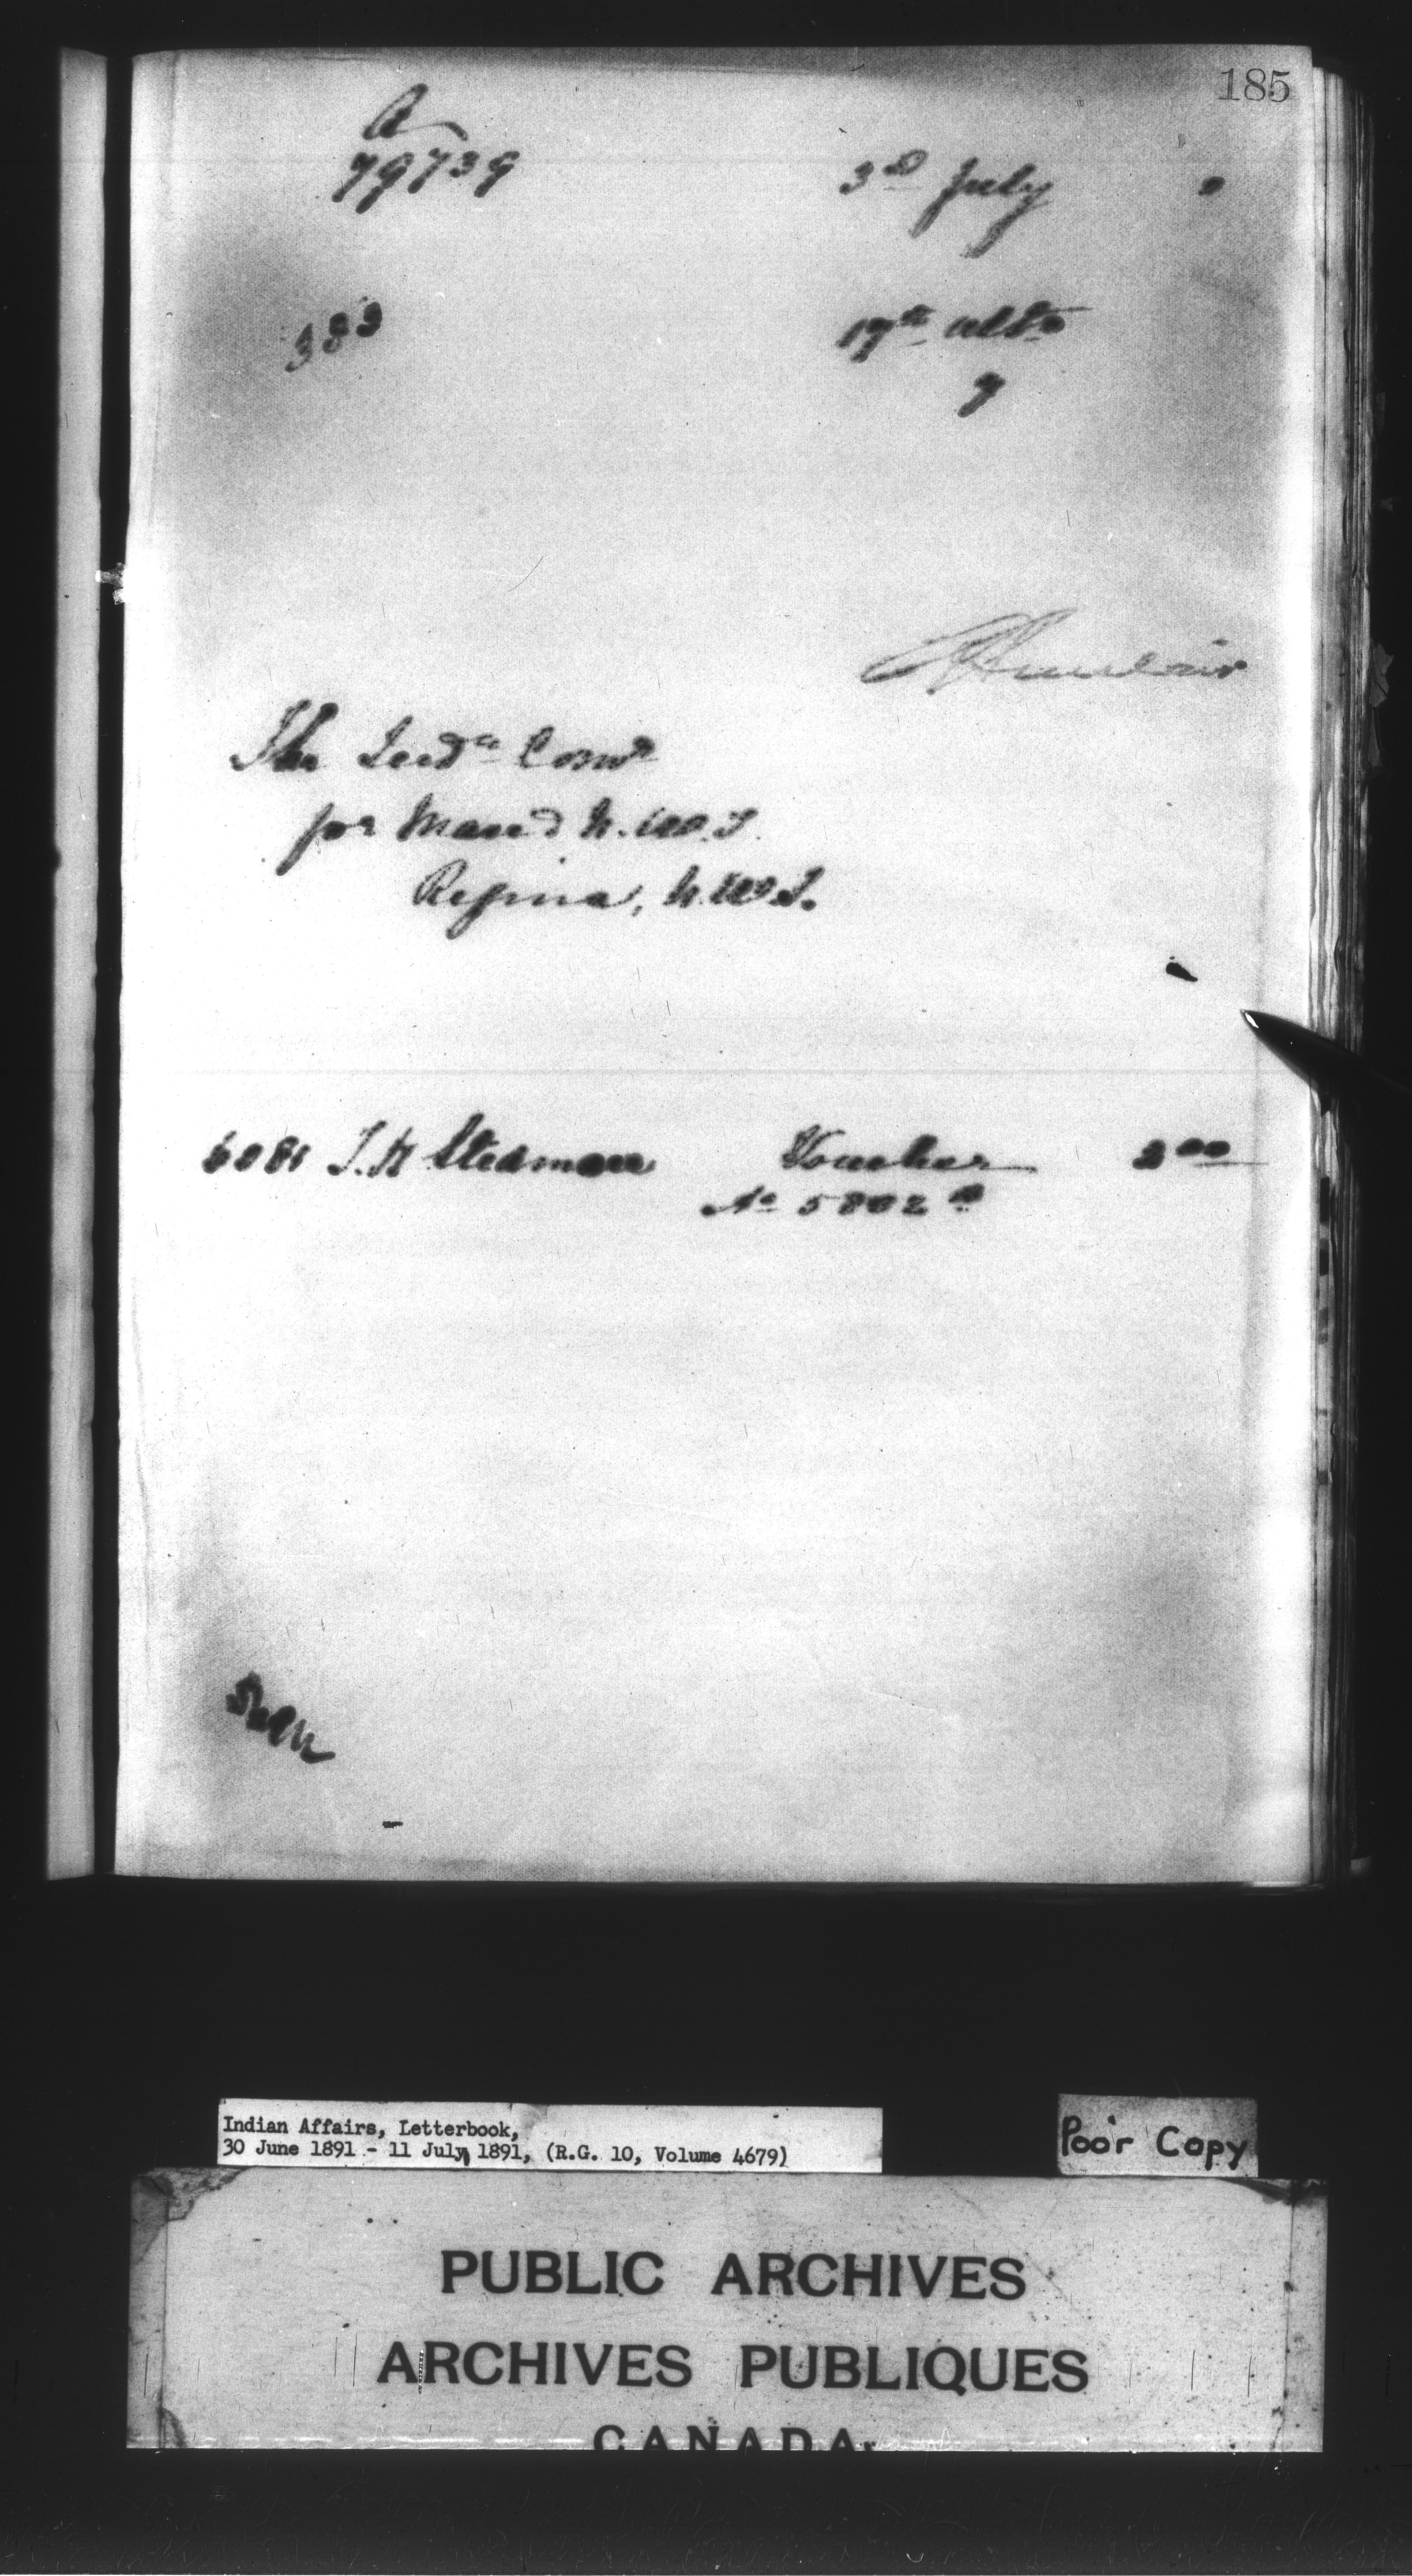 185
A
79739 3rd July
383 17th ulto
7
Sinclair
The Ind'n Comr
for Man & N.W.T.
Regina, N.W.T.
6081 J.H Stedman Voucher 2 00
No 5802
Indian Affairs, Letterbook,
30 June 1891 - 11 July, 1891, (R.G. 10, Volume 4679)
Poor Copy
PUBLIC ARCHIVES
ARCHIVES PUBLIQUES
CANADA